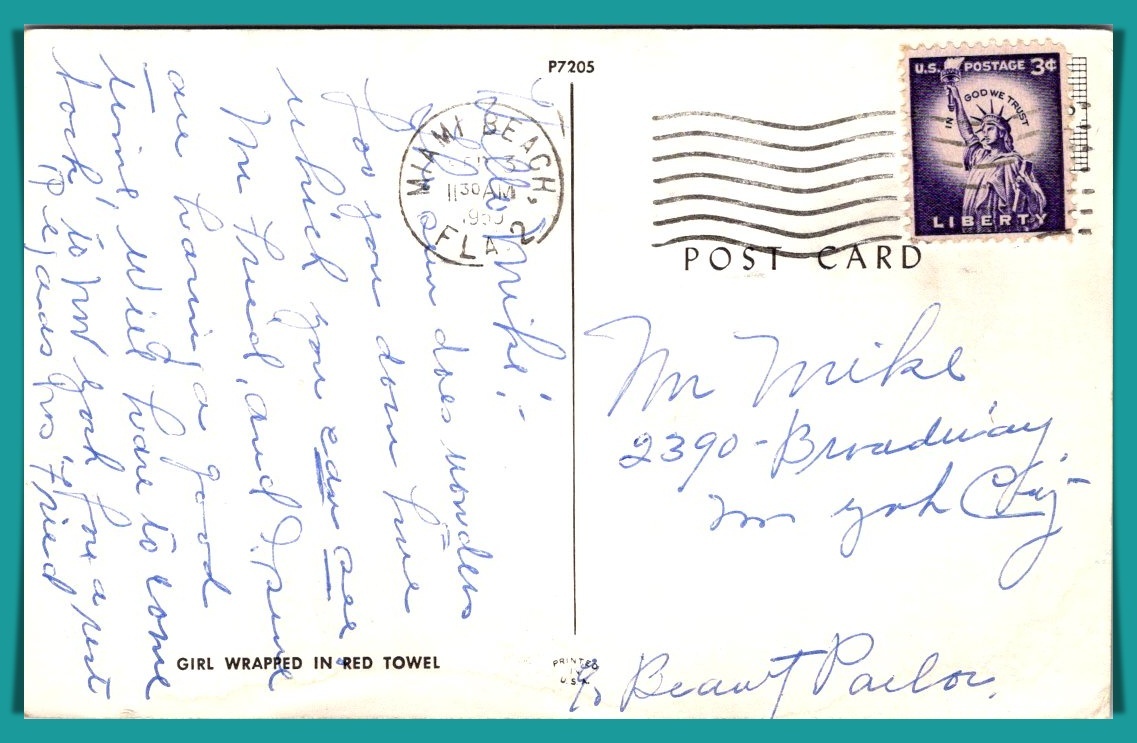 P7205
MIAMI BEACH, FLA 2
11 30 AM
U.S. POSTAGE 3¢
IN GOD WE TRUST
LIBERTY
POST CARD
Hello Mike!-
Sun does wonders
for you down here
which you can see.
Mr Fred, and I, sure
are having a good
time, will have to come
back, to New York for a rest
Mr Mike
2390 - Broadway
New York City -
c/o Beauty Parlor.
GIRL WRAPPED IN RED TOWEL
PRINTED
IN
U.S.A.